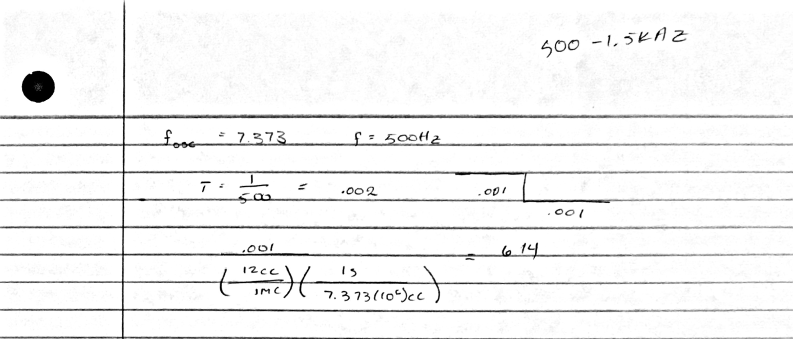 500 - 1.5KHZ
fosc = 7.373 f = 500Hz
T = 1/500 = .002 .001 .001
.001 / (12cc/1MC)(1s/7.373(10⁶)cc) = 614